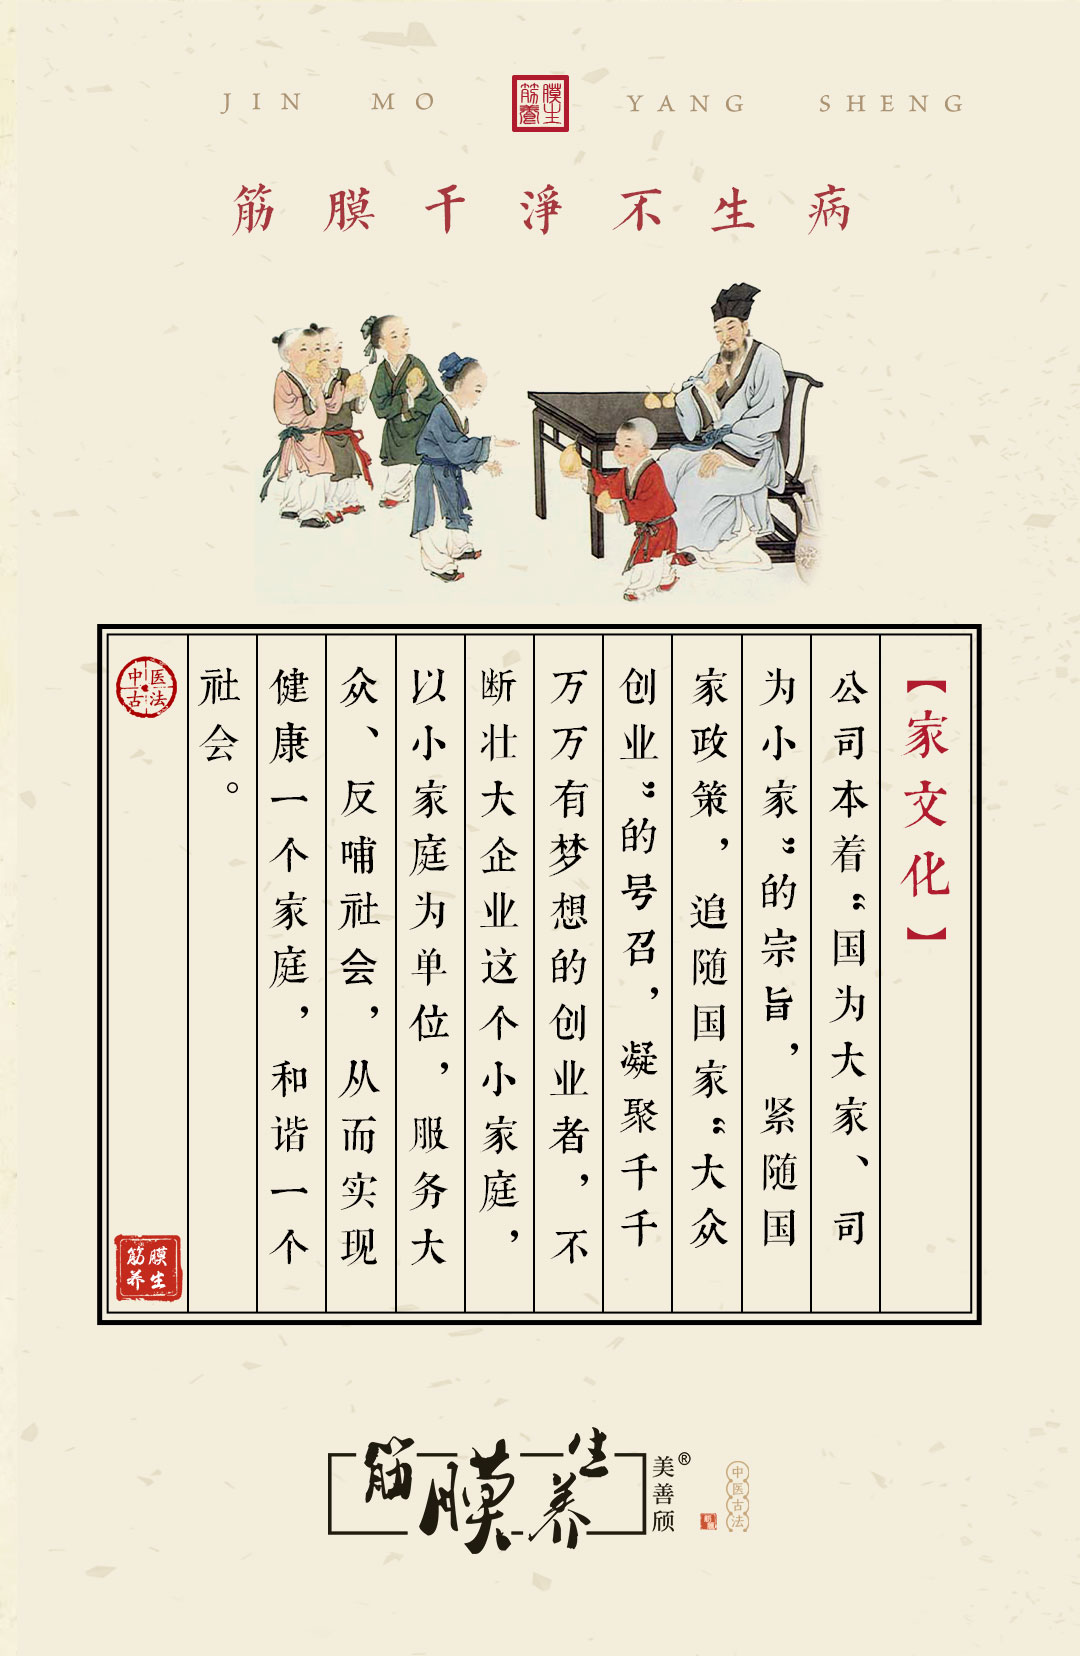 JIN MO YANG SHENG
筋膜养生
筋膜干淨不生病
【家文化】
公司本着“国为大家、司
为小家”的宗旨，紧随国
家政策，追随国家“大众
创业”的号召，凝聚千千
万万有梦想的创业者，不
断壮大企业这个小家庭，
以小家庭为单位，服务大
众、反哺社会，从而实现
健康一个家庭，和谐一个
社会。
中医古法
筋膜养生
筋膜养生
美善颀®
中医古法